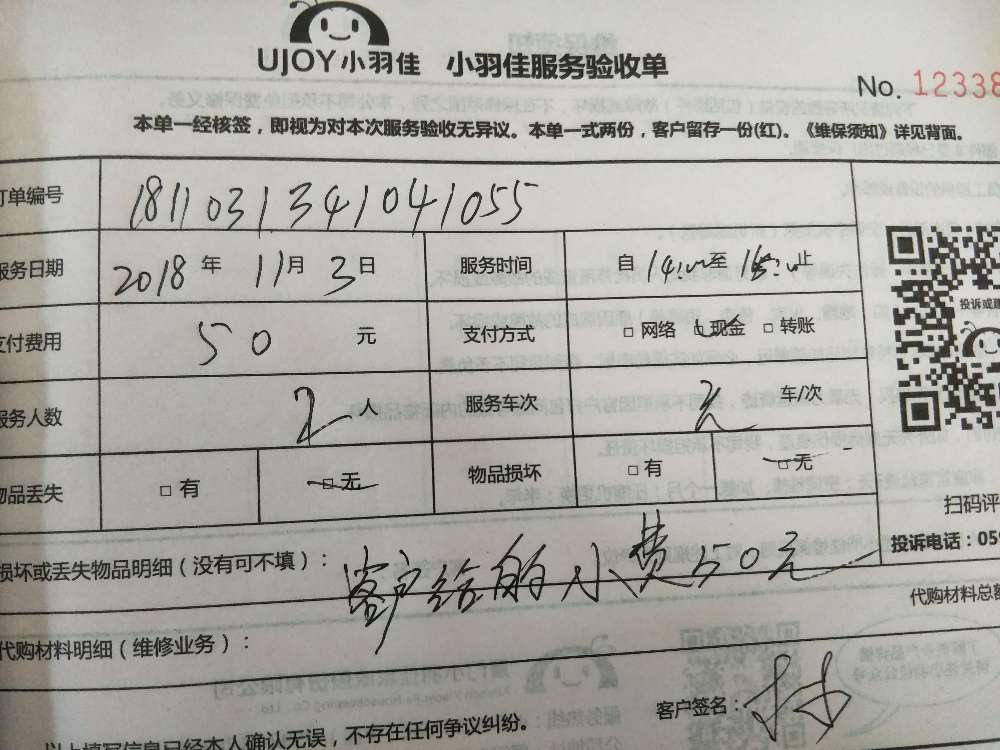 UJOY小羽佳 小羽佳服务验收单
No. 12338
本单一经核签，即视为对本次服务验收无异议。本单一式两份，客户留存一份(红)。《维保须知》详见背面。
订单编号 1811031341041055
服务日期 2018 年 11 月 3 日 服务时间 自 至 止
支付费用 50 元 支付方式 □ 网络 现金 □ 转账
服务人数 2 人 服务车次 无 车/次
物品丢失 □ 有 □ 无 物品损坏 □ 有 □ 无
投诉或建
扫码评
投诉电话：059
损坏或丢失物品明细（没有可不填）： 客户给的小费50元
代购材料总额
代购材料明细（维修业务）：
客户签名：
以上填写信息已经本人确认无误，不存在任何争议纠纷。